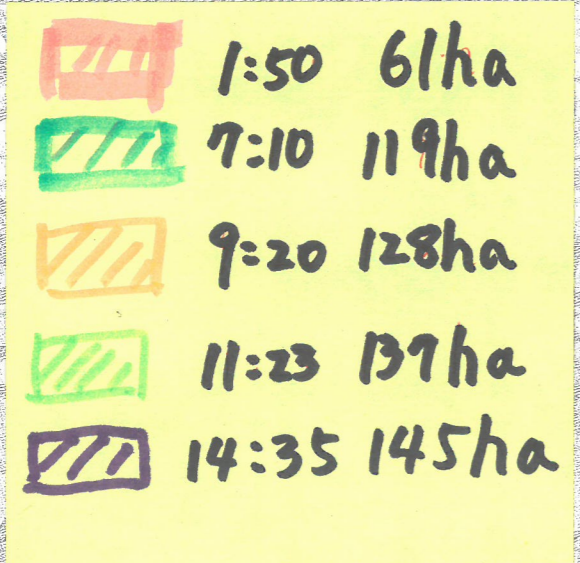 1:50 61ha
7:10 119ha
9:20 128ha
11:23 137ha
14:35 145ha